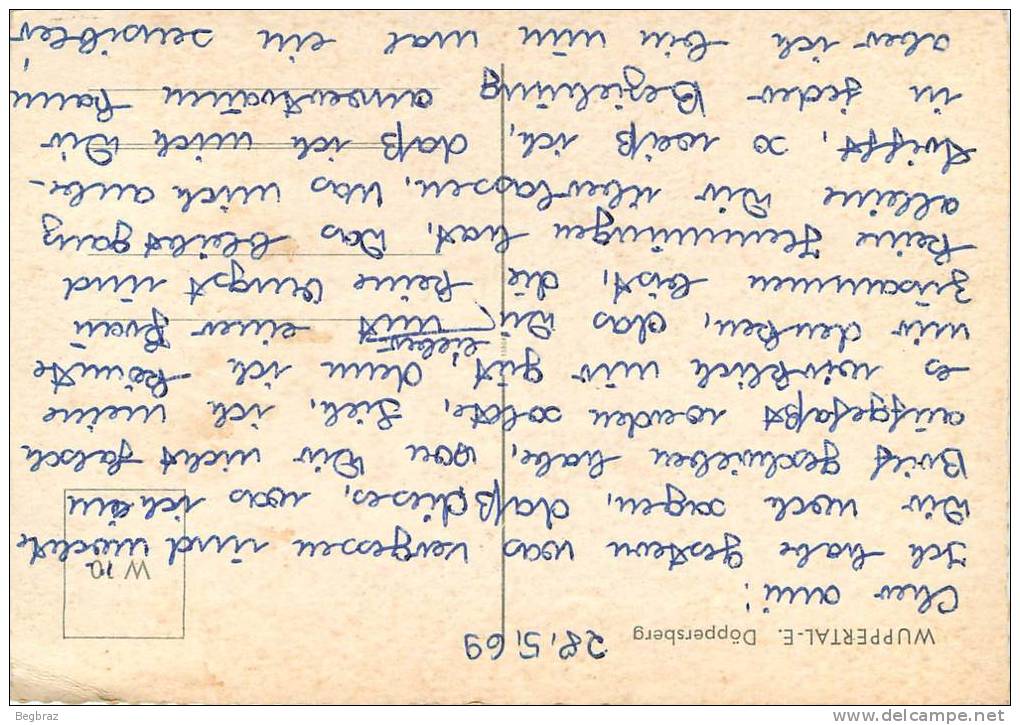 WUPPERTAL-E. Döppersberg
28.5.69
W 10
Cher ami!
Ich habe gestern was vergessen und möchte
Dir noch sagen, daß dieses, was ich im
Brief geschrieben habe, von Dir nicht falsch
aufgefaßt werden solte, Sieh, ich meine
es wirklich mir gut, denn ich könnte
mir denken, das Du lieber mit einer Frau
zusammen bist, die keine Angst und
keine Hemmungen hat, Das bleibt ganz
alleine Dir überlassen, was mich anbe-
trifft, so weiß ich, daß ich mich Dir
in jeder Beziehung anvertrauen kann
aber ich bin nun mal ein sensibler,
Begbraz
www.delcampe.net